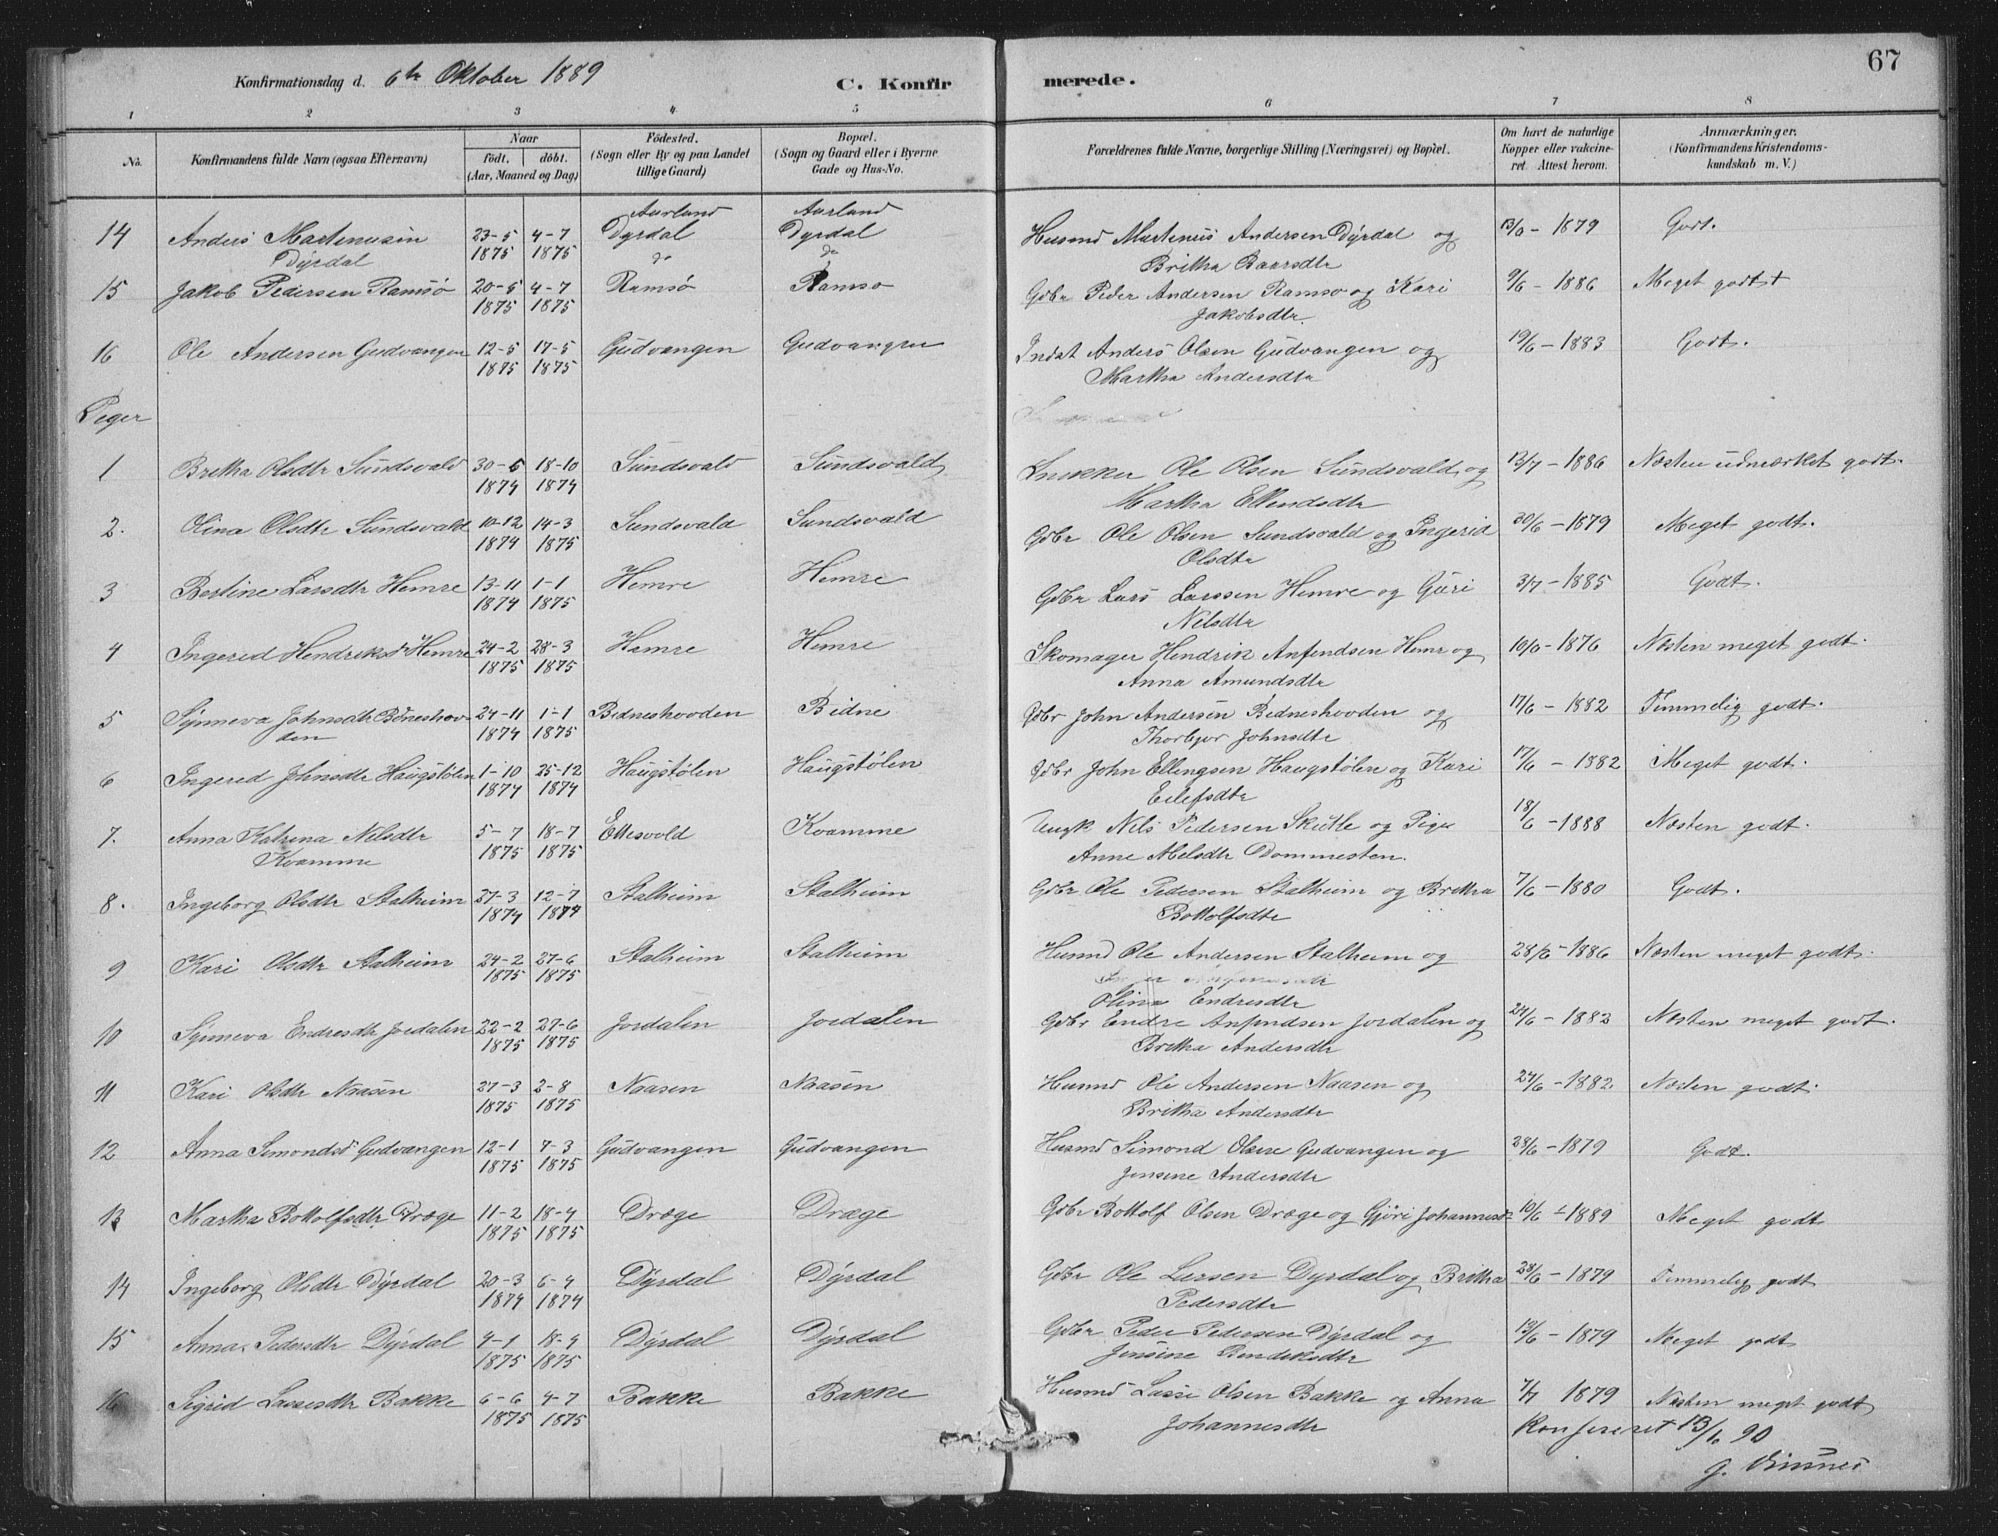 67
Konfirmationsdag d. 6te Oktober 1889 C. Konfirmerede.
1 2 3 4 5 6 7 8
No. Konfirmandens fulde Navn (ogsaa Efternavn) Naar født. døbt. (Aar, Maaned og Dag) Fødested. (Sogn eller By og paa Landet tillige Gaard) Bopæl. (Sogn og Gaard eller i Byerne Gade og Hus-No. Forældrenes fulde Navne, borgerlige Stilling (Næringsvei) og Bopæl. Om havt de naturlige Kopper eller vakcineret. Attest herom. Anmærkninger. (Konfirmandens Kristendomskundskab m. V.)
Aurland Aurland
14 Anders Martenusen 23-5 4-7 Dyrdal Dyrdal Husmd Martenus Andersen Dyrdal og 13/6 - 1879 Godt.
Dyrdal 1875 1875 do do Britha Baarsdtr
15 Jakob Pedersen Ramsø 20-5 4-7 Ramsø Ramso Gdbr Peder Andersen Ramso og Kari 9/6 - 1886 Meget godt +
1875 1875 Jakobsdtr.
16 Ole Andersen Gudvangen 12-5 17-5 Gudvangen Gudvangen Indst Anders Olsen Gudvangen og 19/6 - 1883 Godt.
1875 1875 Martha Andersdtr
Piger
1 Britha Olsdtr Sundsvald 30-6 18-10 Sundsvald Sundsvald Snekker Ole Olsen Sundsvald og 13/7 - 1886 Næsten udmærket godt.
1874 1874 Martha Ellendsdtr
2. Olina Olsdtr Sundsvald 10-12 14-3 Sundsvald Sundsvald Gdbr Ole Olsen Sundsvald og Ingerid 30/6 - 1879 Meget godt.
1874 1875 Olsdtr
3 Bertine Larsdtr Hemre 13-11 1-1 Hemre Hemre Gdbr Lars Larssen Hemre og Guri 3/7 - 1885 Godt.
1874 1875 Nilsdtr
4 Ingerid Hendriksd Hemre 24-2 28-3 Hemre Hemre Skomager Hendrik Anfindsen Hemr og 10/6 - 1876 Næsten meget godt.
1875 1875 Anna Amundsdtr
5 Synneva Johnsdtr Bidneshov- 24-11 1-1 Bidneshovden Bidne Gdbr John Andersen Bidneshovden og 17/6 - 1882 Temmelig godt.
den 1874 1875 Thorbjor Johnsdtr
6 Ingerid Johnsdtr Haugstølen 1-10 25-12 Haugstølen Haugstølen Gdbr John Ellingsen Haugstølen og Kari 17/6 - 1882 Meget godt.
1874 1874 Eilefsdtr
7. Anna Katrina Nilsdtr 5-7 18-7 Ettesvold Kvamme Ungk Nils Pedersen Skutle og Pige 18/6 - 1888 Næsten godt.
Kvamme 1875 1875 Anne Melsdtr Dommesten.
8. Ingeborg Olsdtr Stalheim 27-3 12-7 Stalheim Stalheim Gdbr Ole Pedersen Stalheim og Britha 7/6 - 1880 Godt.
1874 1874 Bottolfsdtr
9 Kari Olsdtr Stalheim 24-2 27-6 Stalheim Stalheim Husmd Ole Andersen Stalheim og 28/6 - 1886 Næsten meget godt.
1875 1875 Olina Endresdtr
10 Synneva Endresdtr Jordalen 22-2 27-6 Jordalen Jordalen Gdbr Endre Anfindsen Jordalen og 24/6 - 1882 Næsten meget godt.
1875 1875 Britha Andersdtr
11 Kari Olsdtr Naasen 27-3 2-8 Naasen Naasen Husmd Ole Andersen Naasen og 24/6 - 1882 Næsten godt.
1875 1875 Britha Andersdtr
12 Anna Simondsd Gudvangen 12-1 7-3 Gudvangen Gudvangen Husmd Simond Olsen Gudvangen og 28/6 - 1879 Godt.
1875 1875 Jensine Andersdtr
13 Martha Bottolfsdtr Drege 11-2 18-4 Drege Drege Gdbr Bottolf Olsen Drege og Gjøri Johannesd 10/6 - 1889 Meget godt
1875 1875
14 Ingeborg Olsdtr Dyrdal 20-3 6-4 Dyrdal Dyrdal Gdbr Ole Larsen Dyrdal og Britha 28/6 - 1879 Temmelig godt
1874 1874 Pedersdtr
15 Anna Pedersdtr Dyrdal 4-1 18-4 Dyrdal Dyrdal Gdbr Peder Pedersen Dyrdal og 13/6 - 1879 Meget godt
1875 1875 Jensine Bendiksdtr
16 Sigrid Lassesdtr Bakke 6-6 4-7 Bakke Bakke Husmd Lasse Olsen Bakke og Anna 7/7 1879 Næsten meget godt
1875 1875 Johannesdtr Konfereret 13/6 90